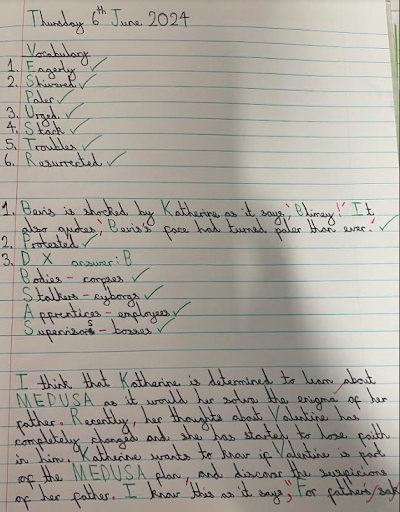 Thursday 6th June 2024
Vocabulary
1. Eagerly ✓
2. Shivered ✓
Paler ✓
3. Urged ✓
4. Stack ✓
5. Troubles ✓
6. Resurrected ✓
1. Bevis is shocked by Katherine as it says, 'Blimey!' It
also quotes, 'Bevis's face had turned paler than ever.' ✓
2. Protested ✓
3. D X answer: B
Bodies - corpses ✓
Stalkers - cyborgs ✓
Apprentices - employees ✓
Supervisors - bosses ✓
I think that Katherine is determined to learn about
MEDUSA as it would her solve the enigma of her
father. Recently, her thoughts about Valentine has
completely changed and she has started to lose faith
in him. Katherine wants to know if Valentine is part
of the MEDUSA plan, and discover the suspicions
of her father. I know this as it says, "For father's sak